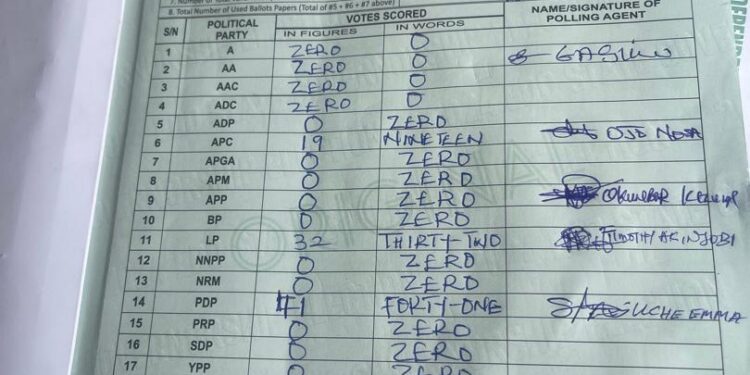 8. Total Number of Used Ballots Papers (Total of #5 + #6 + #7 above)
S/N POLITICAL PARTY VOTES SCORED NAME/SIGNATURE OF POLLING AGENT
IN FIGURES IN WORDS
1 A ZERO 0
2 AA ZERO 0
3 AAC ZERO 0
4 ADC ZERO 0
5 ADP 0 ZERO
6 APC 19 NINETEEN
7 APGA 0 ZERO
8 APM 0 ZERO
9 APP 0 ZERO
10 BP 0 ZERO
11 LP 32 THIRTY-TWO
12 NNPP 0 ZERO
13 NRM 0 ZERO
14 PDP 41 FORTY-ONE UCHE EMMA
15 PRP 0 ZERO
16 SDP 0 ZERO
17 YPP ZERO